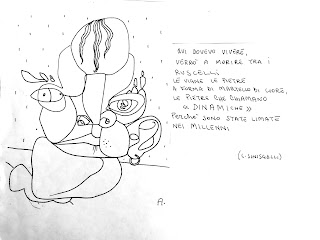 QUI DOVEVO VIVERE,
VERRÒ A MORIRE TRA I
RUSCELLI
LE VIGNE LE PIETRE
A FORMA DI MARTELLO DI CUORE,
LE PIETRE CHE CHIAMANO
« DINAMICHE »
PERCHÉ SONO STATE LIMATE
NEI MILLENNI
(L. SINISGALLI)
A.